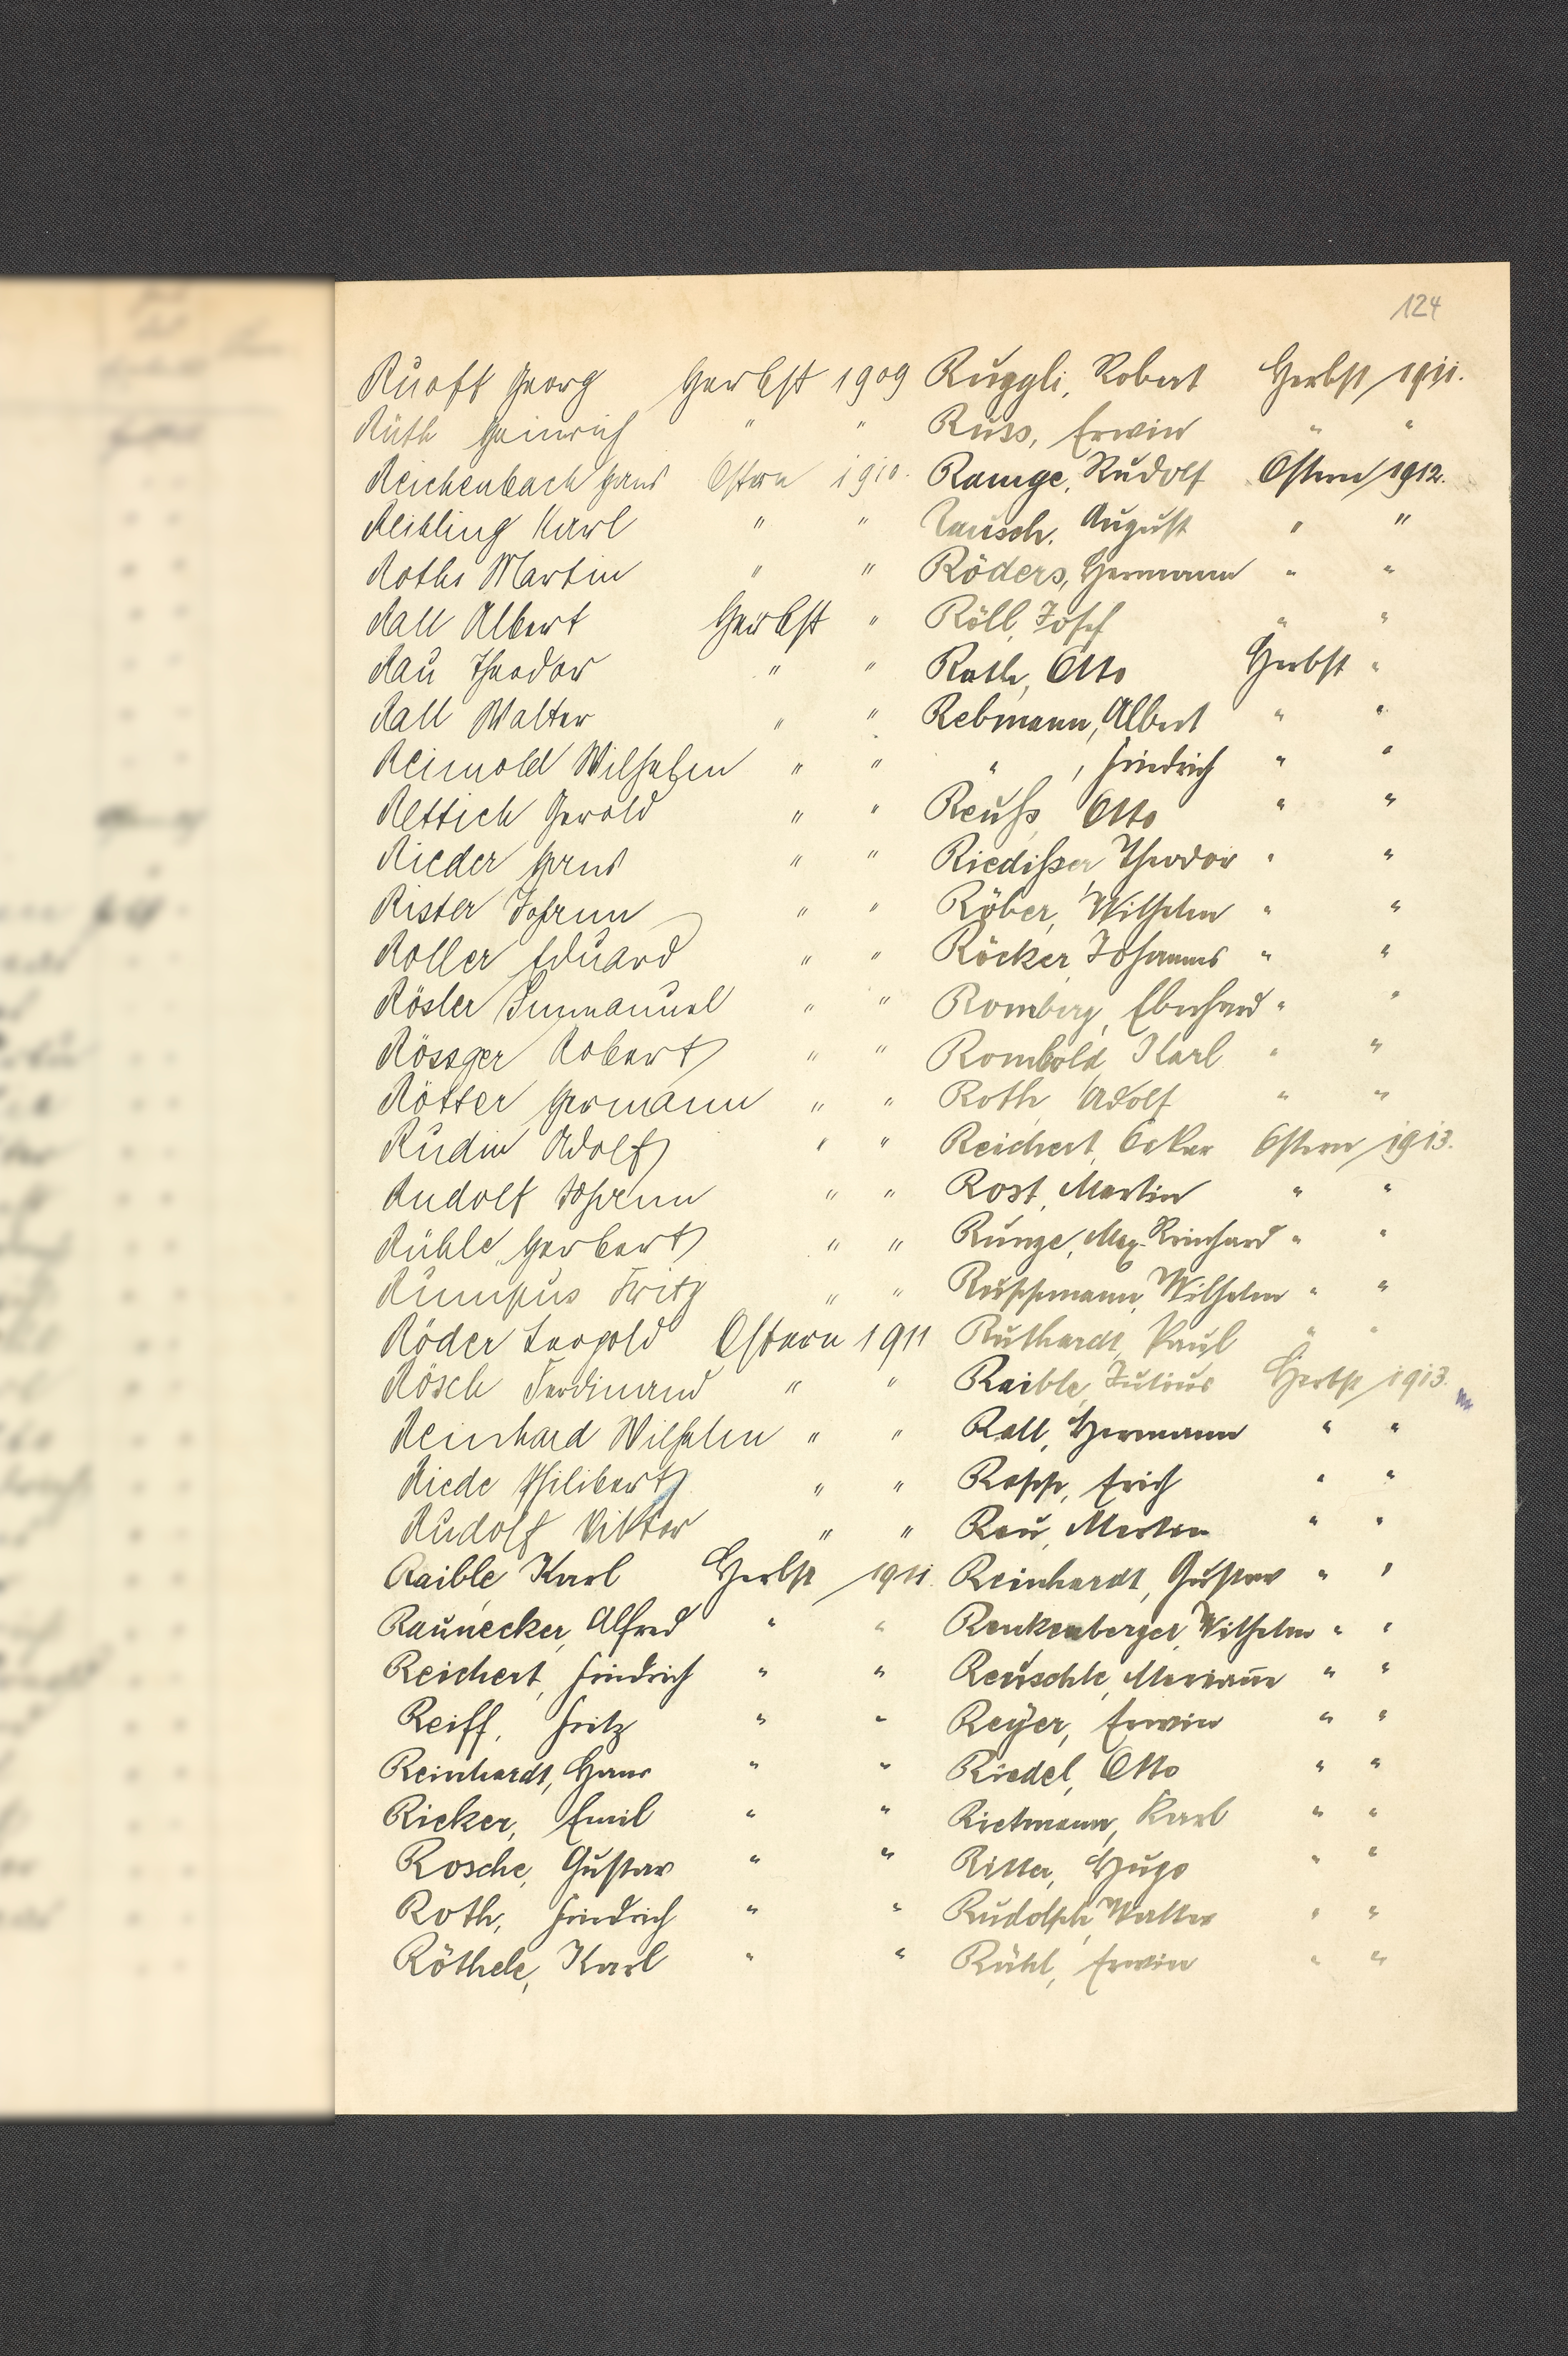 124
Ruoff Georg Herbst 1909
Rüth Heinrich " "
Reichenbach Hans Ostern 1910.
Reibling Karl " "
Roths Martin " "
Rall Albert Herbst "
Rau Theodor " "
Rall Walter " "
Reinold Wilhelm " "
Rettich Gerold " "
Rieder Hans " "
Rister Johann " "
Roller Eduard " "
Rösler Immanuel " "
Rössger Robert " "
Rötter Hermann " "
Rudin Adolf " "
Rudolf Johann " "
Rühle Herbert " "
Rumpus Fritz " "
Röder Leopold Ostern 1911
Rösch Ferdinand " "
Reinhard Wilhelm " "
Riede Philibert " "
Rudolf Viktor " "
Raible Karl Herbst 1911.
Raunecker, Alfred " "
Reichert, Friedrich " "
Reiff, Fritz " "
Reinhardt, Hans " "
Rieker, Emil " "
Rosche, Gustav " "
Roth, Friedrich " "
Röthele, Karl " "
Ruggli, Robert Herbst 1911.
Russ, Erwin " "
Ramge, Rudolf Ostern 1912.
August " "
Röders, Hermann " "
Röll, Josef " "
Rath, Otto Herbst "
Rebmann, Albert " "
" , Friedrich " "
Reuß, Otto " "
Riedißer, Theodor " "
Röber, Wilhelm " "
Röcker, Johannes " "
Romberg, Eberhard " "
Rombold, Karl " "
Roth, Adolf " "
Reichert, Oskar Ostern 1913.
Rost, Martin " "
Runge, Max Reinhard " "
Ruppmann, Wilhelm " "
Ruthardt, Paul " "
Raible, Julius Herbst 1913.
Rall, Hermann " "
Rapp, Erich " "
Rau, Martin " "
Reinhardt, Gustav " "
Renkenberger, Wilhelm " "
Reuschle, Hermann " "
Reyer, Erwin " "
Riedel, Otto " "
Rietmann, Karl " "
Ritter, Hugo " "
Rudolph, Walter " "
Rühl, Erwin " "